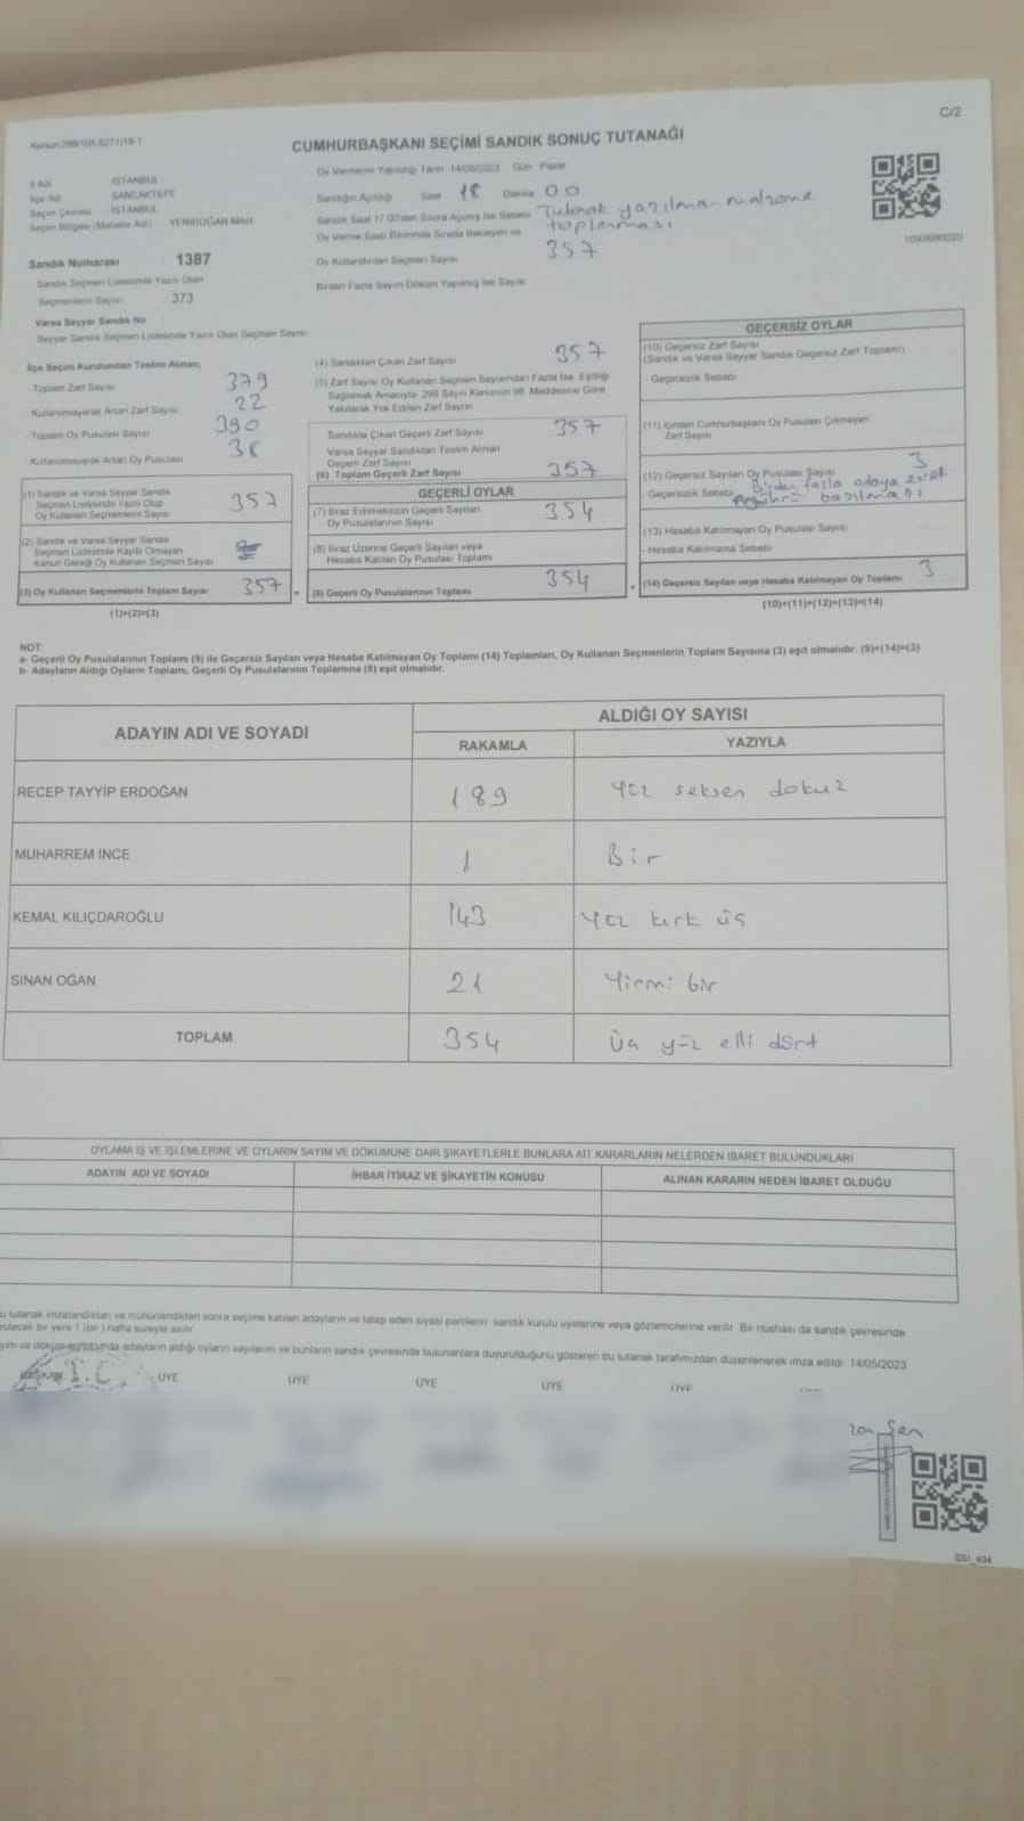 C/2
CUMHURBAŞKANI SEÇİMİ SANDIK SONUÇ TUTANAĞI
Oy Vermenin Yapıldığı Tarih 14/05/2023 Gün Pazar
İl Adı İSTANBUL
İlçe Adı SANCAKTEPE
Seçim Çevresi İSTANBUL
Seçim Bölgesi (Mahalle Adı) YENİDOĞAN MAH.
Sandığın Açıldığı Saat 18 Dakika 00
Sandık Saat 17.00'den Sonra Açılmış İse Sebebi Tutanak yazılma malzeme toplanması
Oy Kullandırılan Seçmen Sayısı 357
Birden Fazla Sayım Döküm Yapılmış İse Sayısı
Sandık Numarası 1387
Sandık Seçmen Listesinde Yazılı Olan
Seçmenlerin Sayısı 373
Varsa Seyyar Sandık No
Seyyar Sandık Seçmen Listesinde Yazılı Olan Seçmen Sayısı
İlçe Seçim Kurulundan Teslim Alınan;
Toplam Zarf Sayısı 379
Kullanılmayarak Artan Zarf Sayısı 22
Toplam Oy Pusulası Sayısı 390
Kullanılmayarak Artan Oy Pusulası
(1) Sandık ve Varsa Seyyar Sandık
Seçmen Listesinde Yazılı Olup
Oy Kullanan Seçmenlerin Sayısı 357
(2) Sandık ve Varsa Seyyar Sandık
Seçmen Listesinde Kayıtlı Olmayan
Kanun Gereği Oy Kullanan Seçmen Sayısı
(3) Oy Kullanan Seçmenlerin Toplam Sayısı 357
(1)+(2)=(3)
(4) Sandıktan Çıkan Zarf Sayısı 357
(5) Zarf Sayısı Oy Kullanan Seçmen Sayısından Fazla İse, Eşitliği
Sağlamak Amacıyla 298 Sayılı Kanunun 98. Maddesine Göre
Yakılarak Yok Edilen Zarf Sayısı
Sandıkta Çıkan Geçerli Zarf Sayısı 357
Varsa Seyyar Sandıktan Teslim Alınan
Geçerli Zarf Sayısı
(6) Toplam Geçerli Zarf Sayısı 357
GEÇERLİ OYLAR
(7) İtiraz Edilmeksizin Geçerli Sayılan
Oy Pusulalarının Sayısı 354
(8) İtiraz Üzerine Geçerli Sayılan veya
Hesaba Katılan Oy Pusulası Toplamı
(9) Geçerli Oy Pusulalarının Toplamı 354
GEÇERSİZ OYLAR
(10) Geçersiz Zarf Sayısı
(Sandık ve Varsa Seyyar Sandık Geçersiz Zarf Toplamı)
Geçersizlik Sebebi
(11) İçinden Cumhurbaşkanı Oy Pusulası Çıkmayan
Zarf Sayısı
(12) Geçersiz Sayılan Oy Pusulası Sayısı 3
Geçersizlik Sebebi Birden fazla adaya evet mührü basılması
(13) Hesaba Katılmayan Oy Pusulası Sayısı
Hesaba Katılmama Sebebi
(14) Geçersiz Sayılan veya Hesaba Katılmayan Oy Toplamı 3
(10)+(11)+(12)+(13)=(14)
NOT:
a- Geçerli Oy Pusulalarının Toplamı (9) ile Geçersiz Sayılan veya Hesaba Katılmayan Oy Toplamı (14) Toplamları, Oy Kullanan Seçmenlerin Toplam Sayısına (3) eşit olmalıdır. (9)+(14)=(3)
b- Adayların Aldığı Oyların Toplamı, Geçerli Oy Pusulalarının Toplamına (9) eşit olmalıdır.
ADAYIN ADI VE SOYADI ALDIĞI OY SAYISI
RAKAMLA YAZIYLA
RECEP TAYYİP ERDOĞAN 189 Yüz seksen dokuz
MUHARREM İNCE 1 Bir
KEMAL KILIÇDAROĞLU 143 Yüz kırk üç
SİNAN OĞAN 21 Yirmi bir
TOPLAM 354 Üç yüz elli dört
OYLAMA İŞ VE İŞLEMLERİNE VE OYLARIN SAYIM VE DÖKÜMÜNE DAİR ŞİKAYETLERLE BUNLARA AİT KARARLARIN NELERDEN İBARET BULUNDUKLARI
ADAYIN ADI VE SOYADI İHBAR İTİRAZ VE ŞİKAYETİN KONUSU ALINAN KARARIN NEDEN İBARET OLDUĞU
tutanak imzalandıktan ve mühürlendikten sonra seçime katılan adayların ve talep eden siyasi partilerin sandık kurulu üyelerine veya gözlemcilerine verilir. Bir nüshası da sandık çevresinde
bir yere 1 (bir) hafta süreyle asılır.
adayların aldığı oyların sayılarını ve bunların sandık çevresinde bulunanlara duyurulduğunu gösteren bu tutanak tarafımızdan düzenlenerek imza edildi. 14/05/2023
T.C. ÜYE ÜYE ÜYE ÜYE ÜYE
Şen